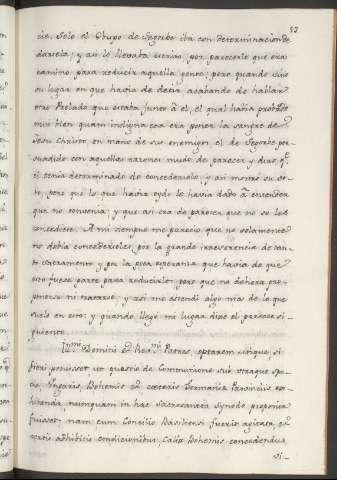 53
cie. Solo el Obispo de Segorbe iba con determinacion de
darsela; y asi lo llevaba escrito, por parecerle que era
camino para reducir aquella gente; pero quando vino
su lugar en que havia de decir acabando de hablar
otro Prelado que estaba junto a el, el qual havia probado
mui bien quam indigna cosa era poner la sangre de
Jesu Christo en mano de sus enemigos, el de Segorbe per-
suadido con aquellas razones mudò de parecer y dixo qe.
el tenia determinado de concederselo, y asi mostrò su vo-
to, pero que lo que havia oydo le havia dado a entender
que no convenia; y que asi era de parecer que no se les
concediese. A mi siempre me parecio que no solamente
no debia concederseles, por la grande irreverencia de tan-
to Sacramento y por la poca esperanza que havia de que
esto fuese parte para reducirlos pero que no debiera pro-
ponerse ni tratarse y asi me estendi algo mas de lo que
suelo en esto: y quando llegò mi lugar dixe el parecer si-
guiente.
Illmi. Domini et Revmi. Patres, optarem utique, si
fieri potuisset ut questio de Communione sub utraque spe-
cie, Ungaris, Bohemis et cæteris Germaniæ Provinciis con-
cedenda, nunquam in hac Sacrosancta Synodo proposita
fuisset, nam cum Concilio Basiliensi fuerit agitata, et
certis adhibitis conditionibus, Calix Bohemis concedendus
vi-